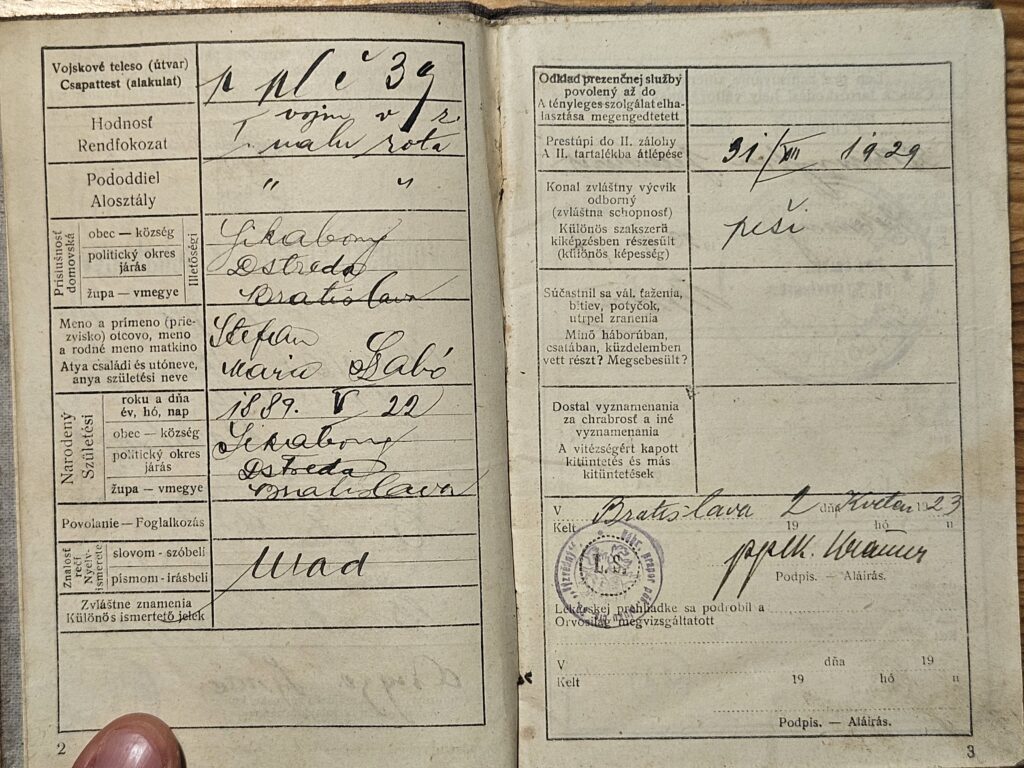 Vojskové teleso (útvar)
Csapattest (alakulat)
p pl č 39
Hodnosť
Rendfokozat
vojín v z.
rota
Pododdiel
Alosztály
" "
Príslušnosť domovská
Illetőségi
obec — község
politický okres
járás
župa — vmegye
Sikabony
Dstreda
Bratislava
Meno a prímeno (prie-
zvisko) otcovo, meno
a rodné meno matkino
Atya családi és utóneve,
anya születési neve
Stefan
Maria Szabó
Narodený
Születési
roku a dňa
év, hó, nap
obec — község
politický okres
járás
župa — vmegye
1889. V 22
Sikabony
Dstreda
Bratislava
Povolanie — Foglalkozás
Znalosť rečí
Nyelv-ismerete
slovom - szóbeli
písmom - írásbeli
Maď
Zvláštne znamenia
Különös ismertető jelek
2
Odklad prezenčnej služby
povolený až do
A tényleges szolgálat elha-
lasztása megengedtetett
Prestúpi do II. zálohy
A II. tartalékba átlépése
31./XII 1929
Konal zvláštny výcvik
odborný
(zvláštna schopnosť)
Különös szakszerű
kiképzésben részesült
(különös képesség)
peší
Súčastnil sa vál. ťaženia,
bitiev, potyčok,
utrpel zranenia
Minő háborúban,
csatában, küzdelemben
vett részt? Megsebesült?
Dostal vyznamenania
za chrabrosť a iné
vyznamenania
A vitézségért kapott
kitüntetés és más
kitüntetések
V Bratislava 2 dňa Květen 1923
Kelt 19 hó n
L. S.
pplk.
Podpis. — Aláírás.
Lekárskej prehliadke sa podrobil a
Orvosilag megvizsgáltatott
V dňa 19
Kelt 19 hó n
Podpis. — Aláírás.
3